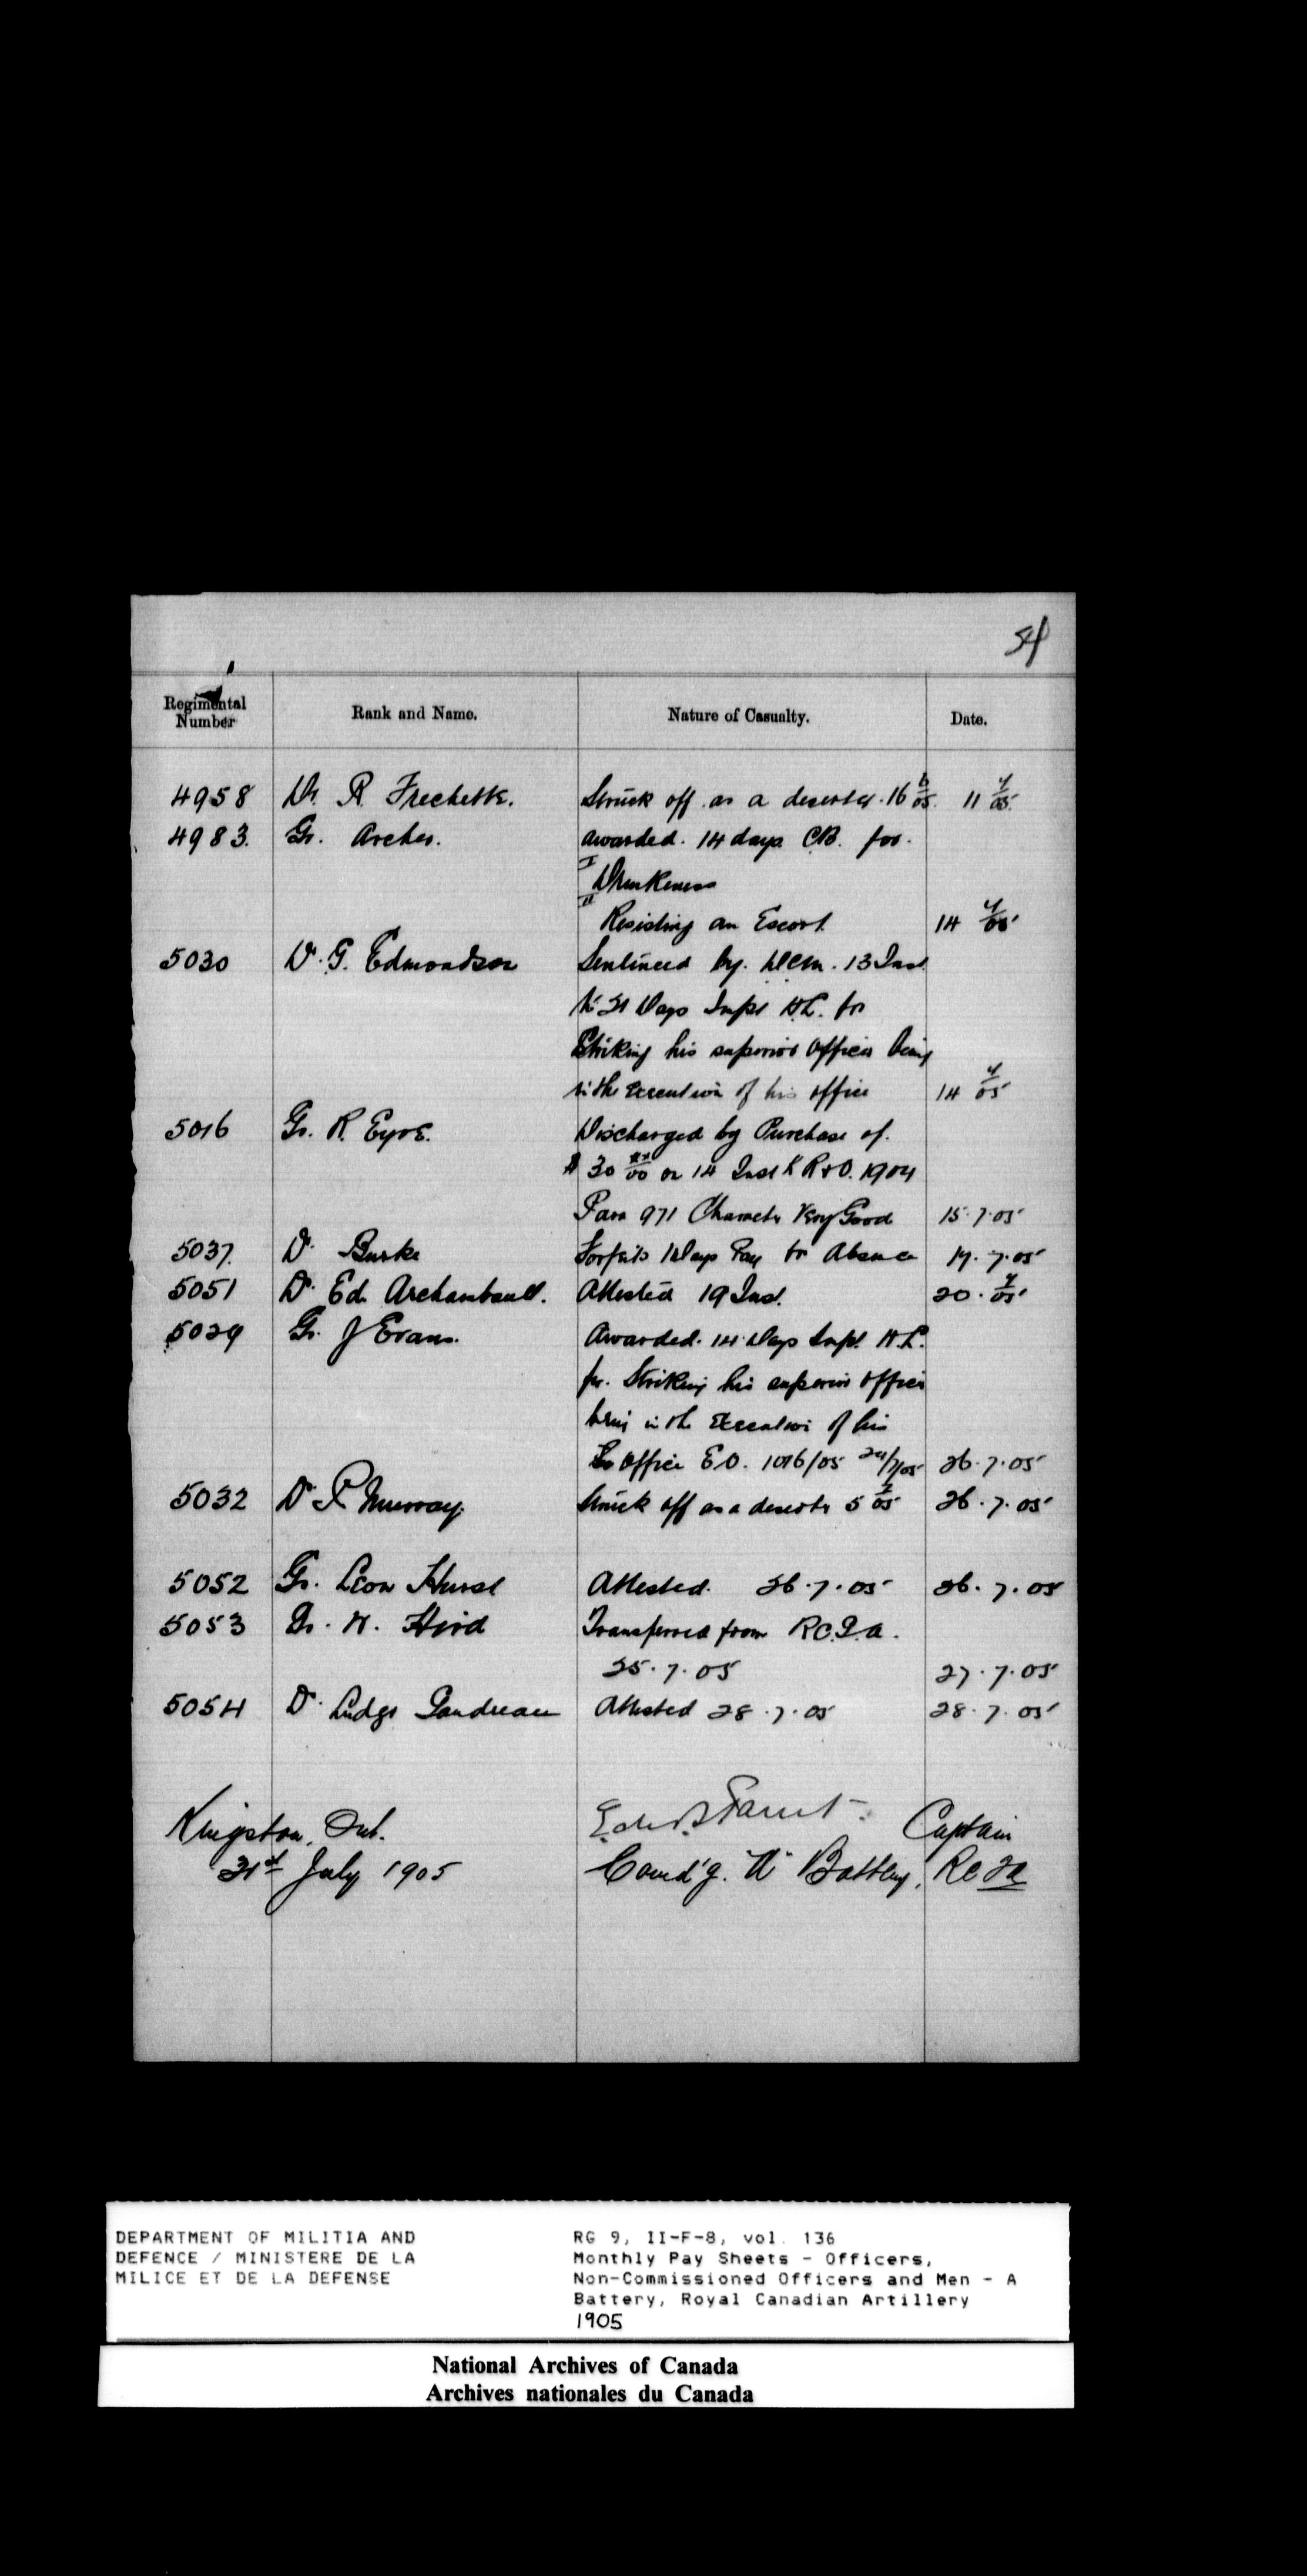 54
Regimental Number Rank and Name. Nature of Casualty. Date.
4958 Dr. R. Frechette. Struck off as a deserter 16 6/05. 11 7/05.
4983. Gr. Archer. awarded 14 days CB. for
I Drunkeness
II Resisting an Escort 14 7/05
5030 Dr. G. Edmondson Sentenced by DCM. 13 Inst
to 21 Days Impt H.L. for
Striking his superior Officer being
in the Execution of his office 14 7/05
5016 Gr. R. Eyre. Discharged by Purchase of.
$ 30 xx/00 on 14 Inst K R&O. 1904
Para 971 Character Very Good 15.7.05
5037. Dr. Burke Forfeits 1 Days Pay for Absence 17.7.05
5051 Dr. Ed. Archambault. Attested 19 Inst. 20. 7/05
5029 Gr. J Evans. Awarded. 14 Days Impt. H.L.
for. Striking his superior officer
being in the Execution of his
Office E.O. 1016/05 24/7/05 26.7.05
5032 Dr. P. Murray. Struck off as a deserter 5 7/05 26.7.05
5052 Gr. Leon Hurst Attested. 26.7.05 26.7.05
5053 Gr. H. Hird Transferred from RC.G.A.
25.7.05 27.7.05
5054 Dr. Ludger Gaudreau Attested 28.7.05 28.7.05
Kingston, Ont. Captain
31st July 1905 Comd'g. "A" Battery, RCFA
DEPARTMENT OF MILITIA AND RG 9, II-F-8, vol. 136
DEFENCE / MINISTERE DE LA Monthly Pay Sheets - Officers,
MILICE ET DE LA DEFENSE Non-Commissioned Officers and Men - A
Battery, Royal Canadian Artillery
1905
National Archives of Canada
Archives nationales du Canada